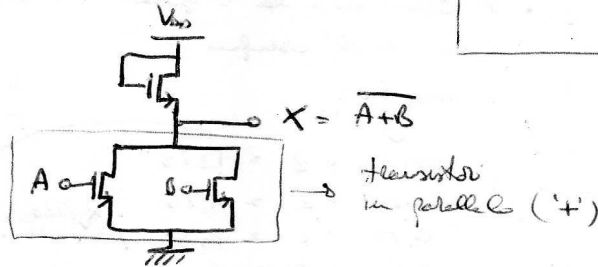 VDD
X = \overline{A+B}
A
B
transistor
in parallelo ('+')